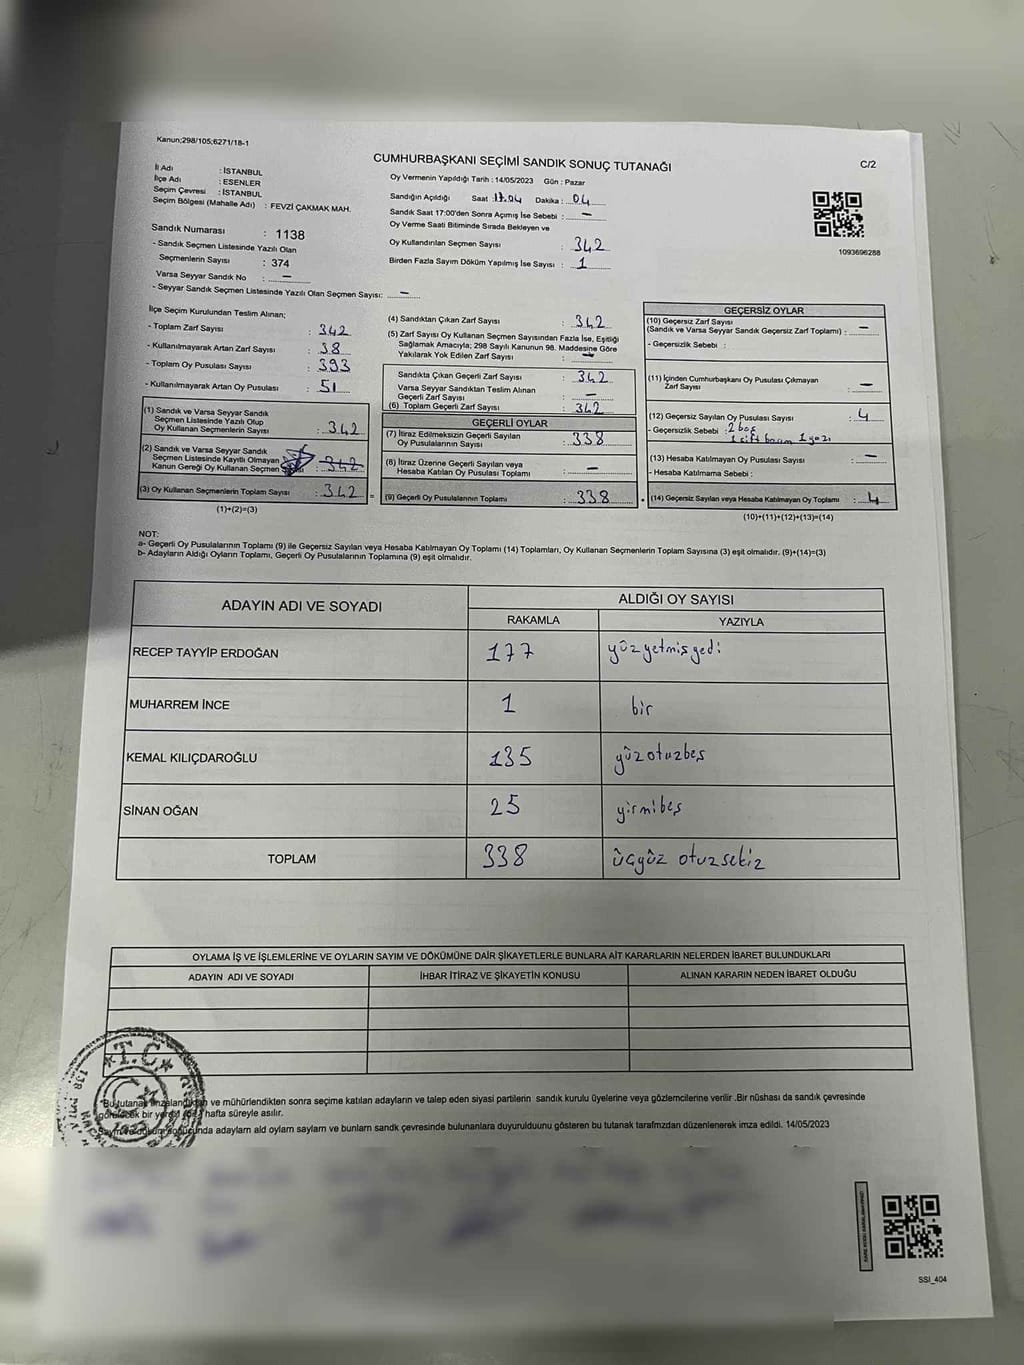 Kanun;298/105;6271/18-1
CUMHURBAŞKANI SEÇİMİ SANDIK SONUÇ TUTANAĞI
C/2
İl Adı : İSTANBUL
İlçe Adı : ESENLER
Seçim Çevresi : İSTANBUL
Seçim Bölgesi (Mahalle Adı) : FEVZİ ÇAKMAK MAH.
Sandık Numarası : 1138
- Sandık Seçmen Listesinde Yazılı Olan
Seçmenlerin Sayısı : 374
Varsa Seyyar Sandık No : —
- Seyyar Sandık Seçmen Listesinde Yazılı Olan Seçmen Sayısı: —
Oy Vermenin Yapıldığı Tarih : 14/05/2023 Gün : Pazar
Sandığın Açıldığı Saat : 17.04 Dakika : 04
Sandık Saat 17:00'den Sonra Açımış İse Sebebi : —
Oy Verme Saati Bitiminde Sırada Bekleyen ve
Oy Kullandırılan Seçmen Sayısı : 342
Birden Fazla Sayım Döküm Yapılmış İse Sayısı : 1
1093696288
İlçe Seçim Kurulundan Teslim Alınan;
- Toplam Zarf Sayısı : 342
- Kullanılmayarak Artan Zarf Sayısı : 38
- Toplam Oy Pusulası Sayısı : 393
- Kullanılmayarak Artan Oy Pusulası : 51
(1) Sandık ve Varsa Seyyar Sandık
Seçmen Listesinde Yazılı Olup
Oy Kullanan Seçmenlerin Sayısı : 342
(2) Sandık ve Varsa Seyyar Sandık
Seçmen Listesinde Kayıtlı Olmayan
Kanun Gereği Oy Kullanan Seçmen : 342
(3) Oy Kullanan Seçmenlerin Toplam Sayısı : 342 =
(1)+(2)=(3)
(4) Sandıktan Çıkan Zarf Sayısı : 342
(5) Zarf Sayısı Oy Kullanan Seçmen Sayısından Fazla İse, Eşitliği
Sağlamak Amacıyla; 298 Sayılı Kanunun 98. Maddesine Göre
Yakılarak Yok Edilen Zarf Sayısı : —
Sandıkta Çıkan Geçerli Zarf Sayısı : 342
Varsa Seyyar Sandıktan Teslim Alınan
Geçerli Zarf Sayısı : —
(6) Toplam Geçerli Zarf Sayısı : 342
GEÇERLİ OYLAR
(7) İtiraz Edilmeksizin Geçerli Sayılan
Oy Pusulalarının Sayısı : 338
(8) İtiraz Üzerine Geçerli Sayılan veya
Hesaba Katılan Oy Pusulası Toplamı : —
(9) Geçerli Oy Pusulalarının Toplamı : 338
GEÇERSİZ OYLAR
(10) Geçersiz Zarf Sayısı
(Sandık ve Varsa Seyyar Sandık Geçersiz Zarf Toplamı) : —
- Geçersizlik Sebebi :
(11) İçinden Cumhurbaşkanı Oy Pusulası Çıkmayan
Zarf Sayısı : —
(12) Geçersiz Sayılan Oy Pusulası Sayısı : 4
- Geçersizlik Sebebi : 2 boş
1 çift basım 1 yazı
(13) Hesaba Katılmayan Oy Pusulası Sayısı : —
- Hesaba Katılmama Sebebi :
(14) Geçersiz Sayılan veya Hesaba Katılmayan Oy Toplamı : 4
(10)+(11)+(12)+(13)=(14)
NOT:
a- Geçerli Oy Pusulalarının Toplamı (9) ile Geçersiz Sayılan veya Hesaba Katılmayan Oy Toplamı (14) Toplamları, Oy Kullanan Seçmenlerin Toplam Sayısına (3) eşit olmalıdır. (9)+(14)=(3)
b- Adayların Aldığı Oyların Toplamı, Geçerli Oy Pusulalarının Toplamına (9) eşit olmalıdır.
ADAYIN ADI VE SOYADI
ALDIĞI OY SAYISI
RAKAMLA YAZIYLA
RECEP TAYYİP ERDOĞAN 177 yüzyetmişyedi
MUHARREM İNCE 1 bir
KEMAL KILIÇDAROĞLU 135 yüzotuzbeş
SİNAN OĞAN 25 yirmibeş
TOPLAM 338 üçyüz otuzsekiz
OYLAMA İŞ VE İŞLEMLERİNE VE OYLARIN SAYIM VE DÖKÜMÜNE DAİR ŞİKAYETLERLE BUNLARA AİT KARARLARIN NELERDEN İBARET BULUNDUKLARI
ADAYIN ADI VE SOYADI İHBAR İTİRAZ VE ŞİKAYETİN KONUSU ALINAN KARARIN NEDEN İBARET OLDUĞU
T.C.
*Bu tutanak imzalandıktan ve mühürlendikten sonra seçime katılan adayların ve talep eden siyasi partilerin sandık kurulu üyelerine veya gözlemcilerine verilir .Bir nüshası da sandık çevresinde
görülecek bir yerde hafta süreyle asılır.
Sayım ve döküm sonucunda adayların ald oyların sayların ve bunların sandk çevresinde bulunanlara duyurulduunu gösteren bu tutanak tarafmzdan düzenlenerek imza edildi. 14/05/2023
SSI_404